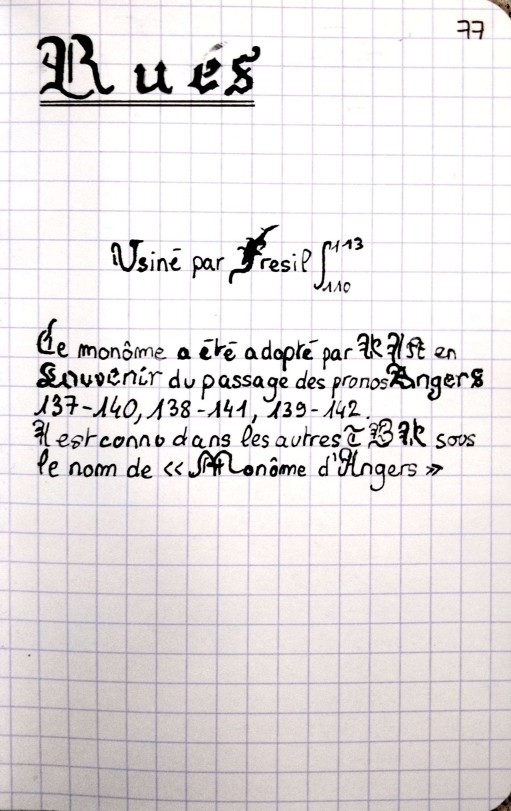 77
Rues
Usiné par Fresil ∫ 113 110
Ce monôme a été adopté par
en
Souvenir du passage des pronos Angers
137-140, 138-141, 139-142.
Il est connu dans les autres
sous
le nom de « Monôme d'Angers »